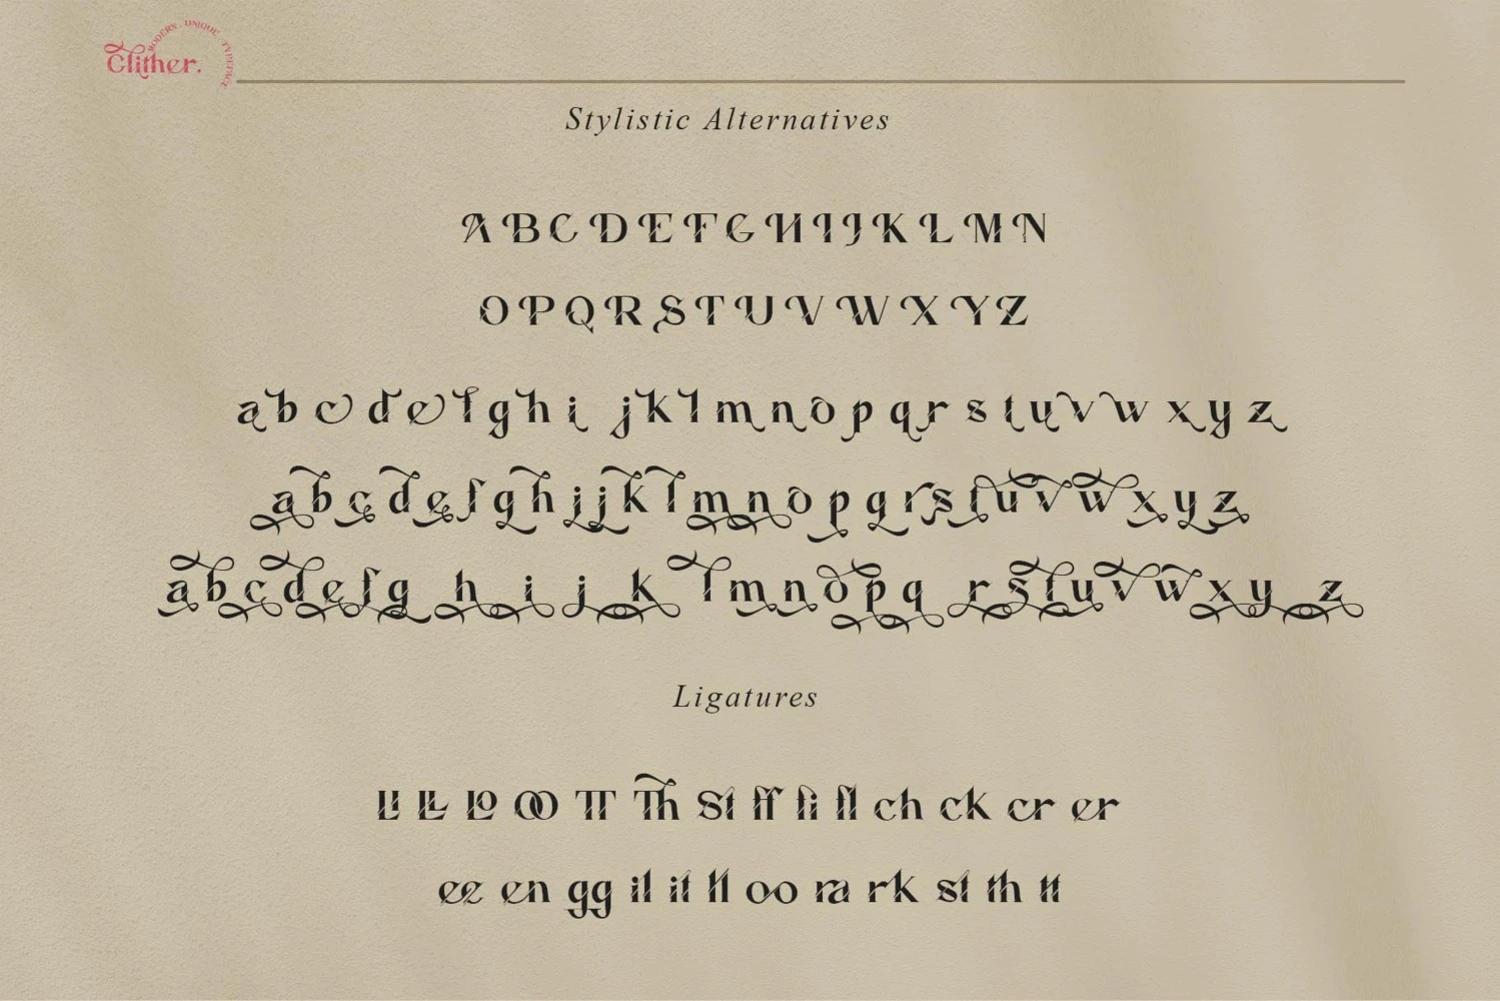 MODERN . UNIQUE . TYPEFACE
Clither.
Stylistic Alternatives
A B C D E F G H I J K L M N
O P Q R S T U V W X Y Z
a b c d e f g h i j k l m n o p q r s t u v w x y z
a b c d e f g h i j k l m n o p q r s t u v w x y z
a b c d e f g h i j k l m n o p q r s t u v w x y z
Ligatures
LI LL LO OO TT Th St ff fi fl ch ck cr er
ee en gg il it ll oo ra rk st th tt